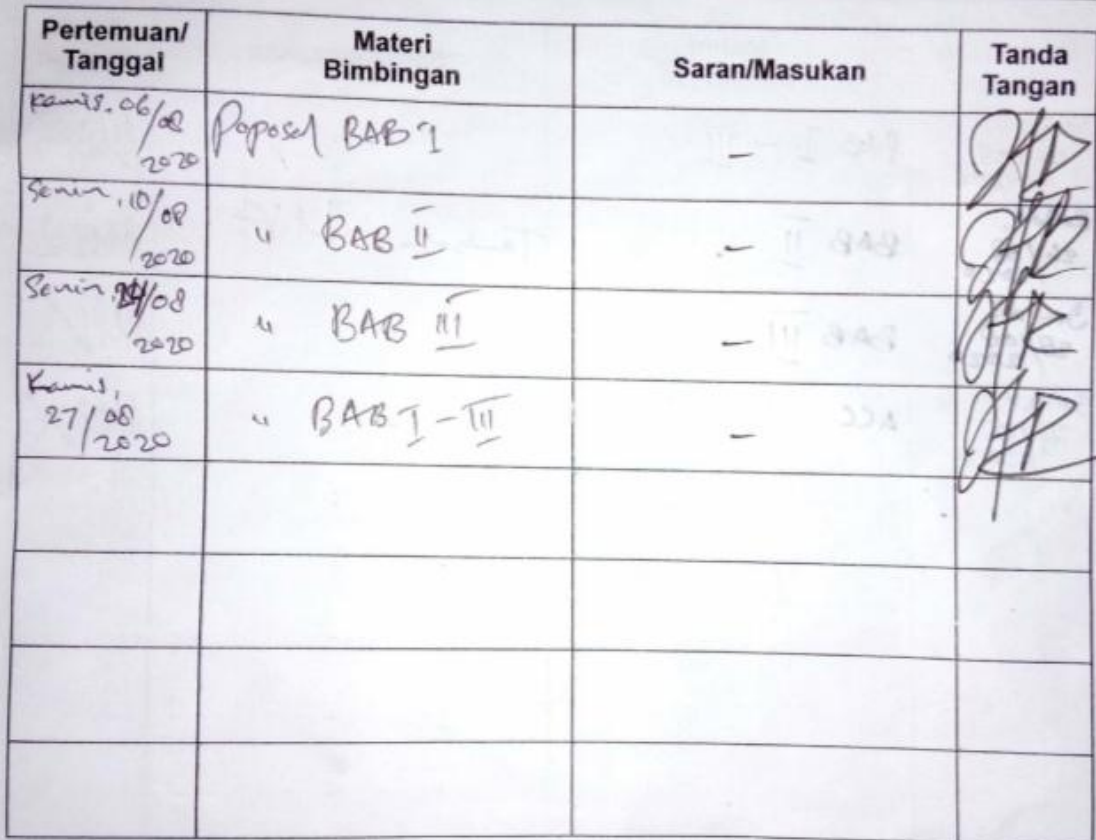 Pertemuan/
Tanggal
Materi
Bimbingan
Saran/Masukan
Tanda
Tangan
Kamis, 06/08
2020
Poposal BAB I
-
Senin, 10/08
2020
" BAB II
-
Senin, 24/08
2020
" BAB III
-
Kamis,
27/08
2020
" BAB I - III
-